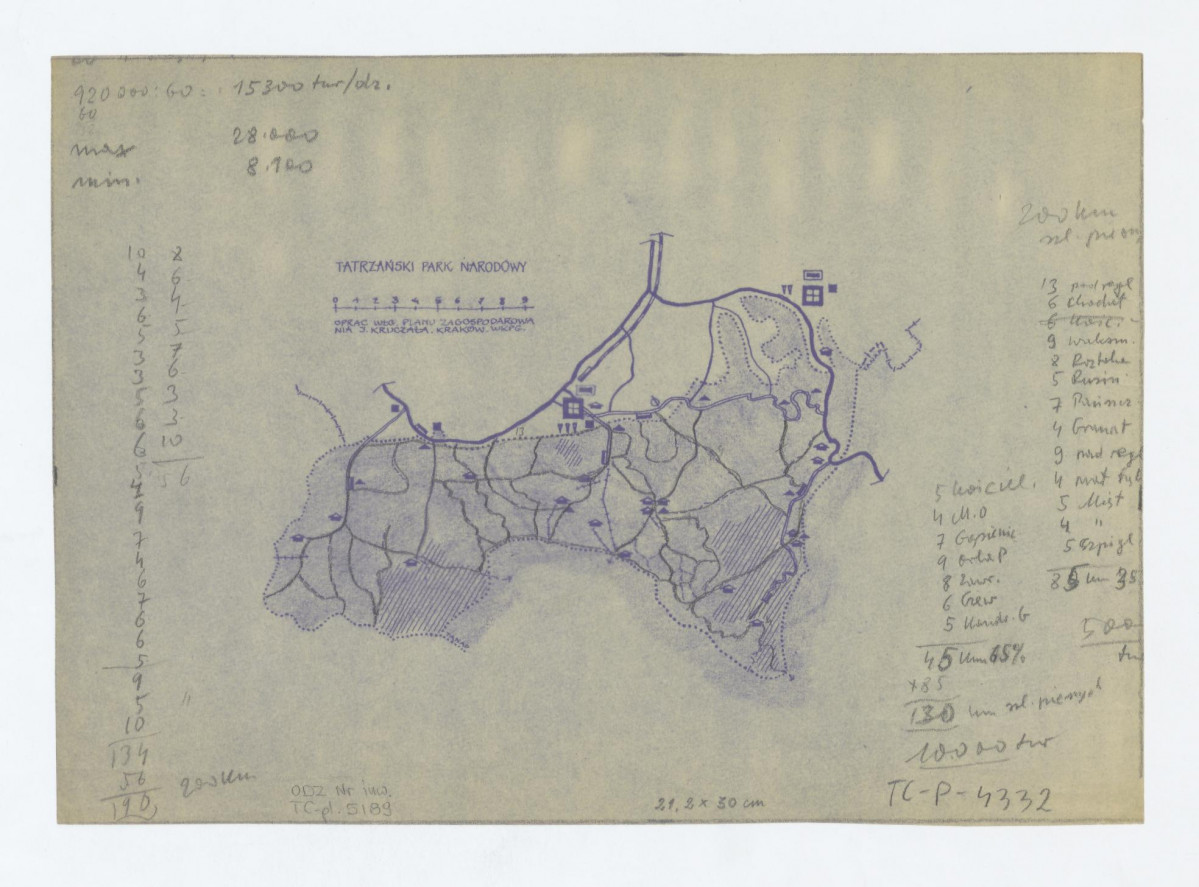 920 000 : 60 = 15300 tur/dz.
60
max 28.000
min. 8.100
200 km
szl. piesz
TATRZAŃSKI PARK NARODOWY
0 1 2 3 4 5 6 7 8 9
OPRAC. WEG. PLANU ZAGOSPODAROWA
NIA J. KRUCZAŁA. KRAKÓW. WKPG.
10 8
4 6
3 4
6 5
5 7
3 6
3 3
5 3
6 10
6 56
5
4
9
9
7
4
6
7
6
6
5
9
5 "
10
134
56 200 km
190
13 pod regl
6 Chochoł
6 Kość.
9
8 Roztoka
5 Rusin
7
4 Granat
9 nad regl
4
5 Mist
4 "
5 Szpigl
85 km 35
500
tur
5 Kościel.
4 M.O
7 Gąsienic
9 Orla P
8 Zawr.
6 Czerw
5 Kondr. G
45 km 65%
+85
130 km szl. pieszych
10000 tur
ODZ Nr inw.
TC-pl. 5189
21,2 x 30 cm
TC-P-4332